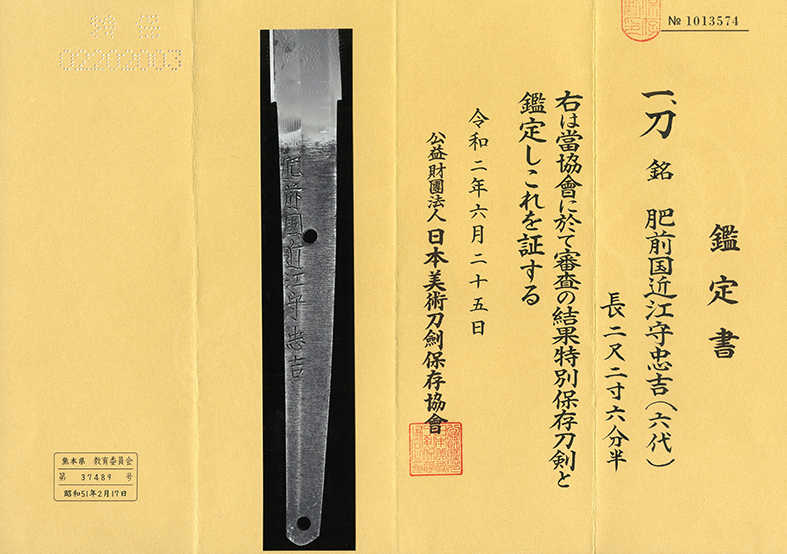 № 1013574
鑑定書
一、刀 銘 肥前国近江守忠吉(六代)
長二尺二寸六分半
右は當協會に於て審査の結果特別保存刀劍と
鑑定しこれを証する
令和二年六月二十五日
公益財團法人 日本美術刀劍保存協會
肥前国近江守忠吉
02202003
熊本県 教育委員会
第 37489 号
昭和51年2月17日